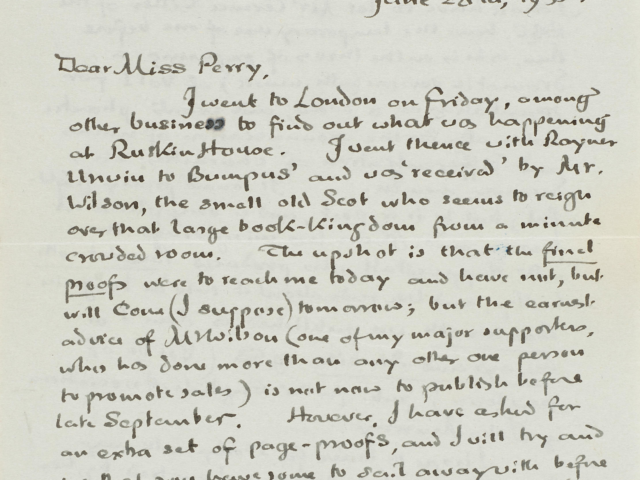 June
Dear Miss Perry,
I went to London on Friday, among
other business to find out what was happening
at Ruskin House. I went thence with Rayner
Unwin to Bumpus' and was 'received' by Mr.
Wilson, the small old Scot who seems to reign
over that large book-kingdom from a minute
crowded room. The upshot is that the final
proofs were to reach me today and have not, but
will come (I suppose) tomorrow; but the earnest
advice of Mr Wilson (one of my major supporters,
who has done more than any other one person
to promote sales) is not now to publish before
late September. However, I have asked for
an extra set of page-proofs, and I will try and
you have some to sail away with before